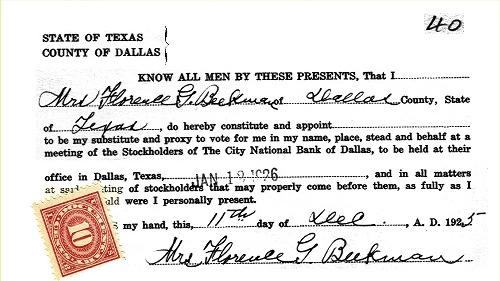 40
STATE OF TEXAS
COUNTY OF DALLAS
KNOW ALL MEN BY THESE PRESENTS, That I
Mrs Florence G. Beekman of Dallas County, State
of Texas, do hereby constitute and appoint
to be my substitute and proxy to vote for me in my name, place, stead and behalf at a
meeting of the Stockholders of The City National Bank of Dallas, to be held at their
office in Dallas, Texas, JAN 12 1926, and in all matters
at said ting of stockholders that may properly come before them, as fully as I
ould were I personally present.
ss my hand, this 11th day of Dec., A. D. 1925
Mrs Florence G Beekman
10